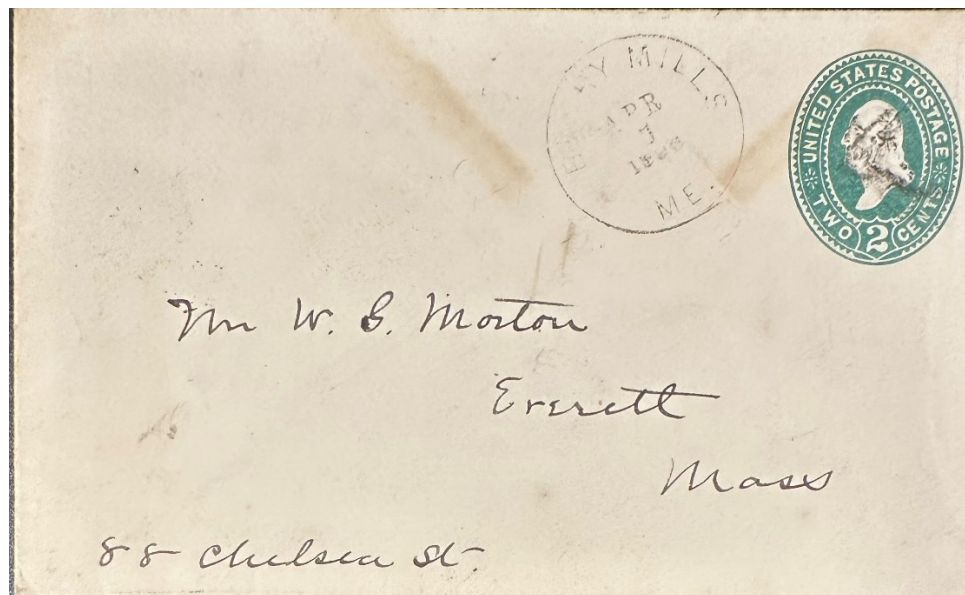 MILLS
APR
ME.
UNITED STATES POSTAGE
TWO 2 CENTS
Mr W. G. Morton
Everett
Mass
88 Chelsea St.